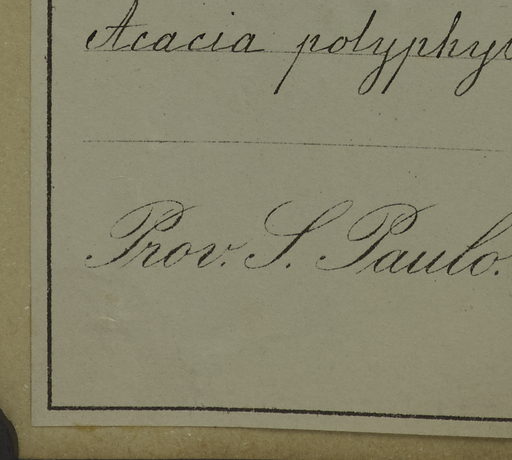 Acacia polyphy
Prov. S. Paulo.